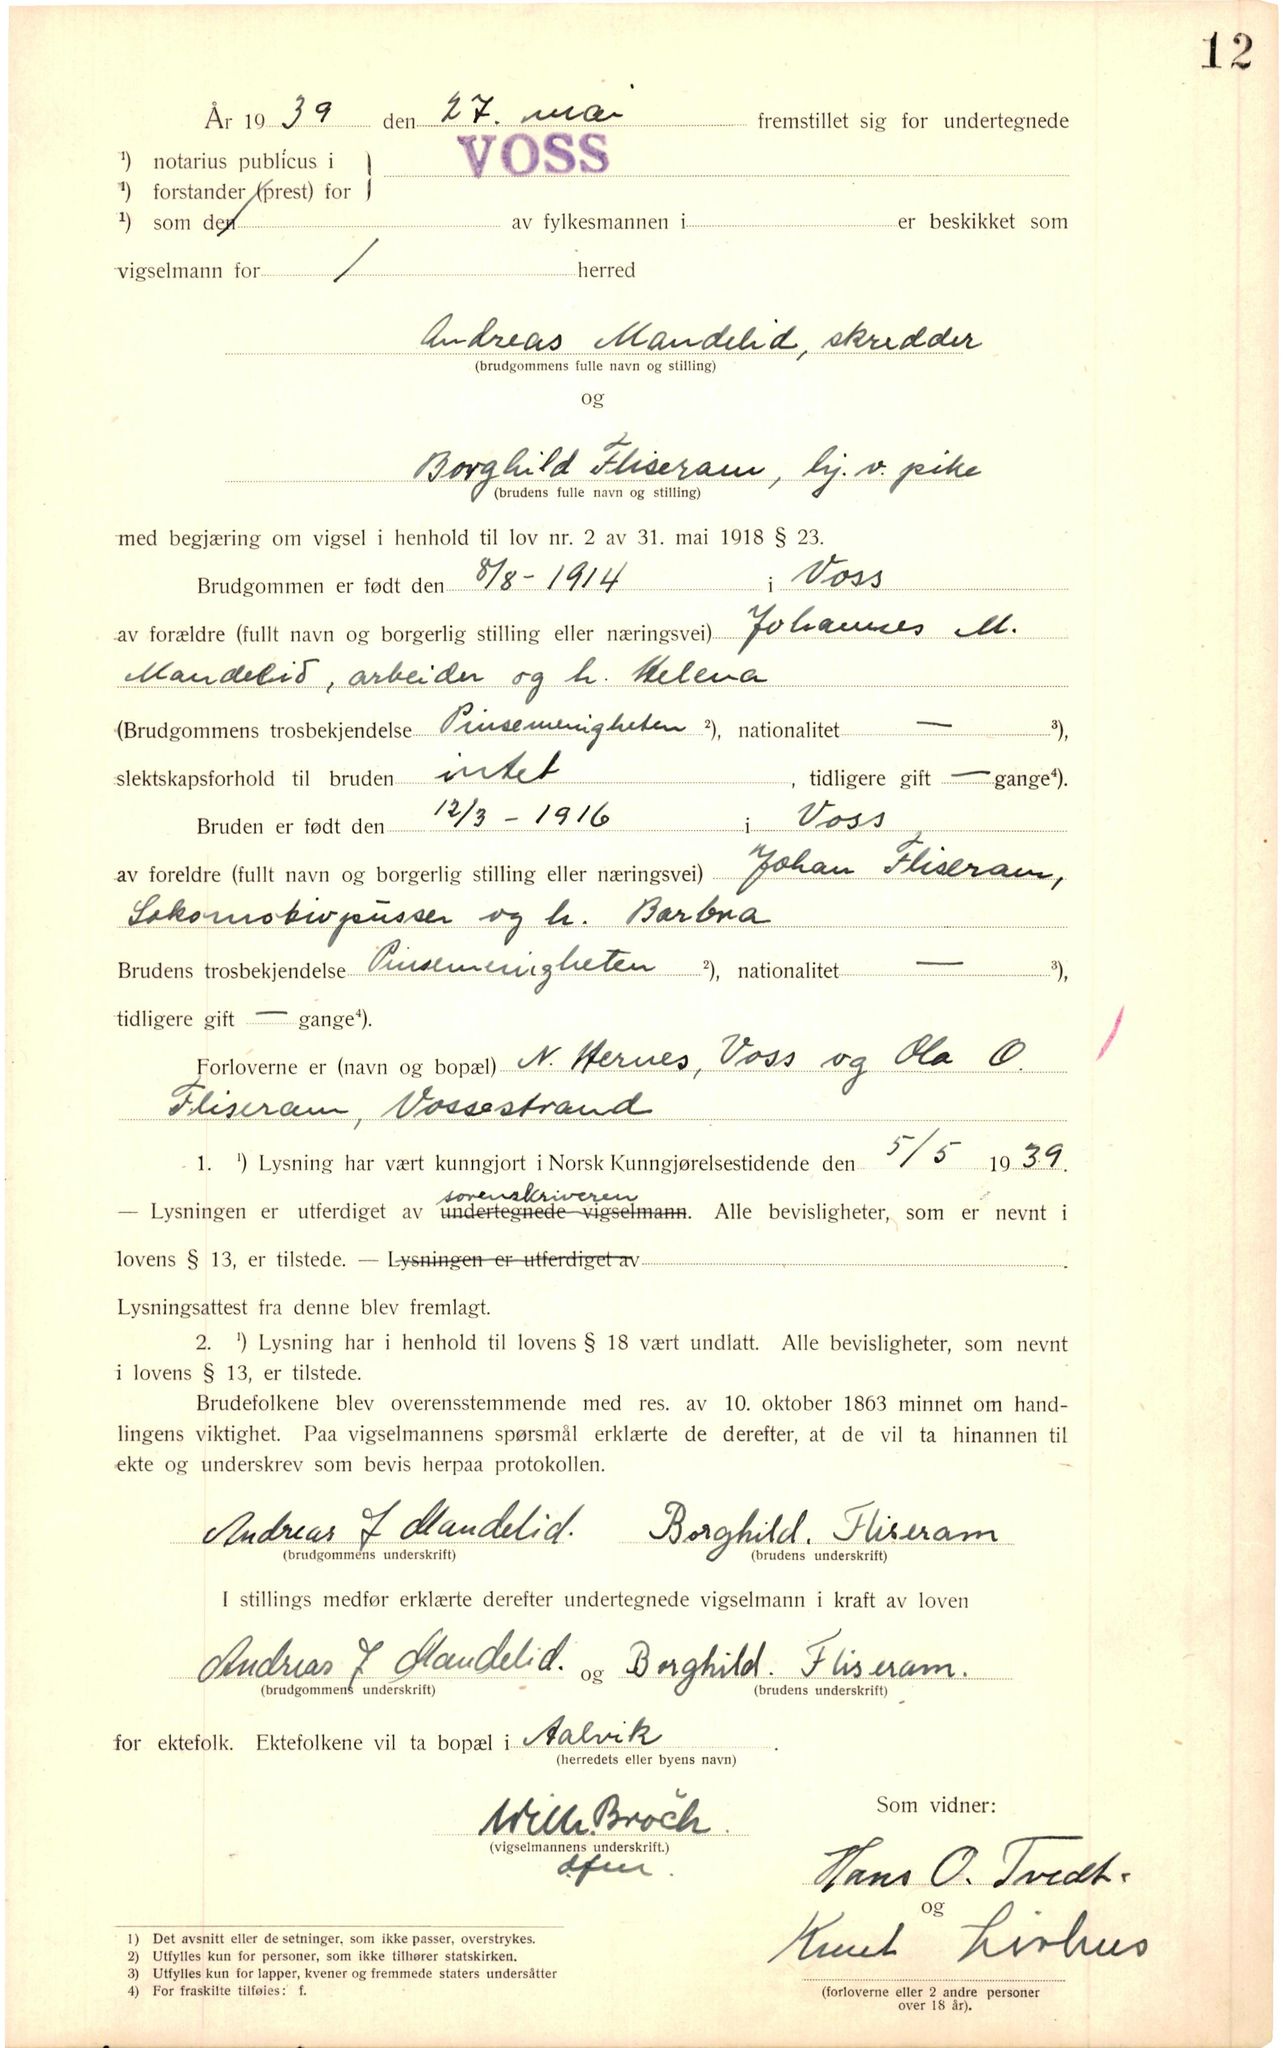 12
År 1939 den 27. mai fremstillet sig for undertegnede
1) notarius publicus i } VOSS
1) forstander (prest) for
1) som den av fylkesmannen i er beskikket som
vigselmann for / herred
Andreas Mandelid, skredder
(brudgommens fulle navn og stilling)
og
Borghild Fliseram, hj. v. pike
(brudens fulle navn og stilling)
med begjæring om vigsel i henhold til lov nr. 2 av 31. mai 1918 § 23.
Brudgommen er født den 8/8 - 1914 i Voss
av forældre (fullt navn og borgerlig stilling eller næringsvei) Johannes M.
Mandelid, arbeider og h. Helena
(Brudgommens trosbekjendelse Pinsemenigheten 2), nationalitet — 3),
slektskapsforhold til bruden intet, tidligere gift — gange4).
Bruden er født den 12/3 - 1916 i Voss
av foreldre (fullt navn og borgerlig stilling eller næringsvei) Johan Fliseram,
Lokomotivpusser og h. Barbra
Brudens trosbekjendelse Pinsemenigheten 2), nationalitet — 3),
tidligere gift — gange4).
Forloverne er (navn og bopæl) N. Hernes, Voss og Ola O.
Fliseram, Vossestrand
1. 1) Lysning har vært kunngjort i Norsk Kunngjørelsestidende den 5/5 1939.
sorenskriveren
— Lysningen er utferdiget av undertegnede vigselmann. Alle bevisligheter, som er nevnt i
lovens § 13, er tilstede. — Lysningen er utferdiget av .
Lysningsattest fra denne blev fremlagt.
2. 1) Lysning har i henhold til lovens § 18 vært undlatt. Alle bevisligheter, som nevnt
i lovens § 13, er tilstede.
Brudefolkene blev overensstemmende med res. av 10. oktober 1863 minnet om hand-
lingens viktighet. Paa vigselmannens spørsmål erklærte de derefter, at de vil ta hinannen til
ekte og underskrev som bevis herpaa protokollen.
Andreas J Mandelid. Borghild. Fliseram
(brudgommens underskrift) (brudens underskrift)
I stillings medfør erklærte derefter undertegnede vigselmann i kraft av loven
Andreas J Mandelid. og Borghild. Fliseram.
(brudgommens underskrift) (brudens underskrift)
for ektefolk. Ektefolkene vil ta bopæl i Aalvik.
(herredets eller byens navn)
Som vidner:
Wilh. Broch.
(vigselmannens underskrift.)
Hans O. Tvedt.
og
Knut Lirhus
(forloverne eller 2 andre personer
over 18 år).
1) Det avsnitt eller de setninger, som ikke passer, overstrykes.
2) Utfylles kun for personer, som ikke tilhører statskirken.
3) Utfylles kun for lapper, kvener og fremmede staters undersåtter
4) For fraskilte tilføies: f.